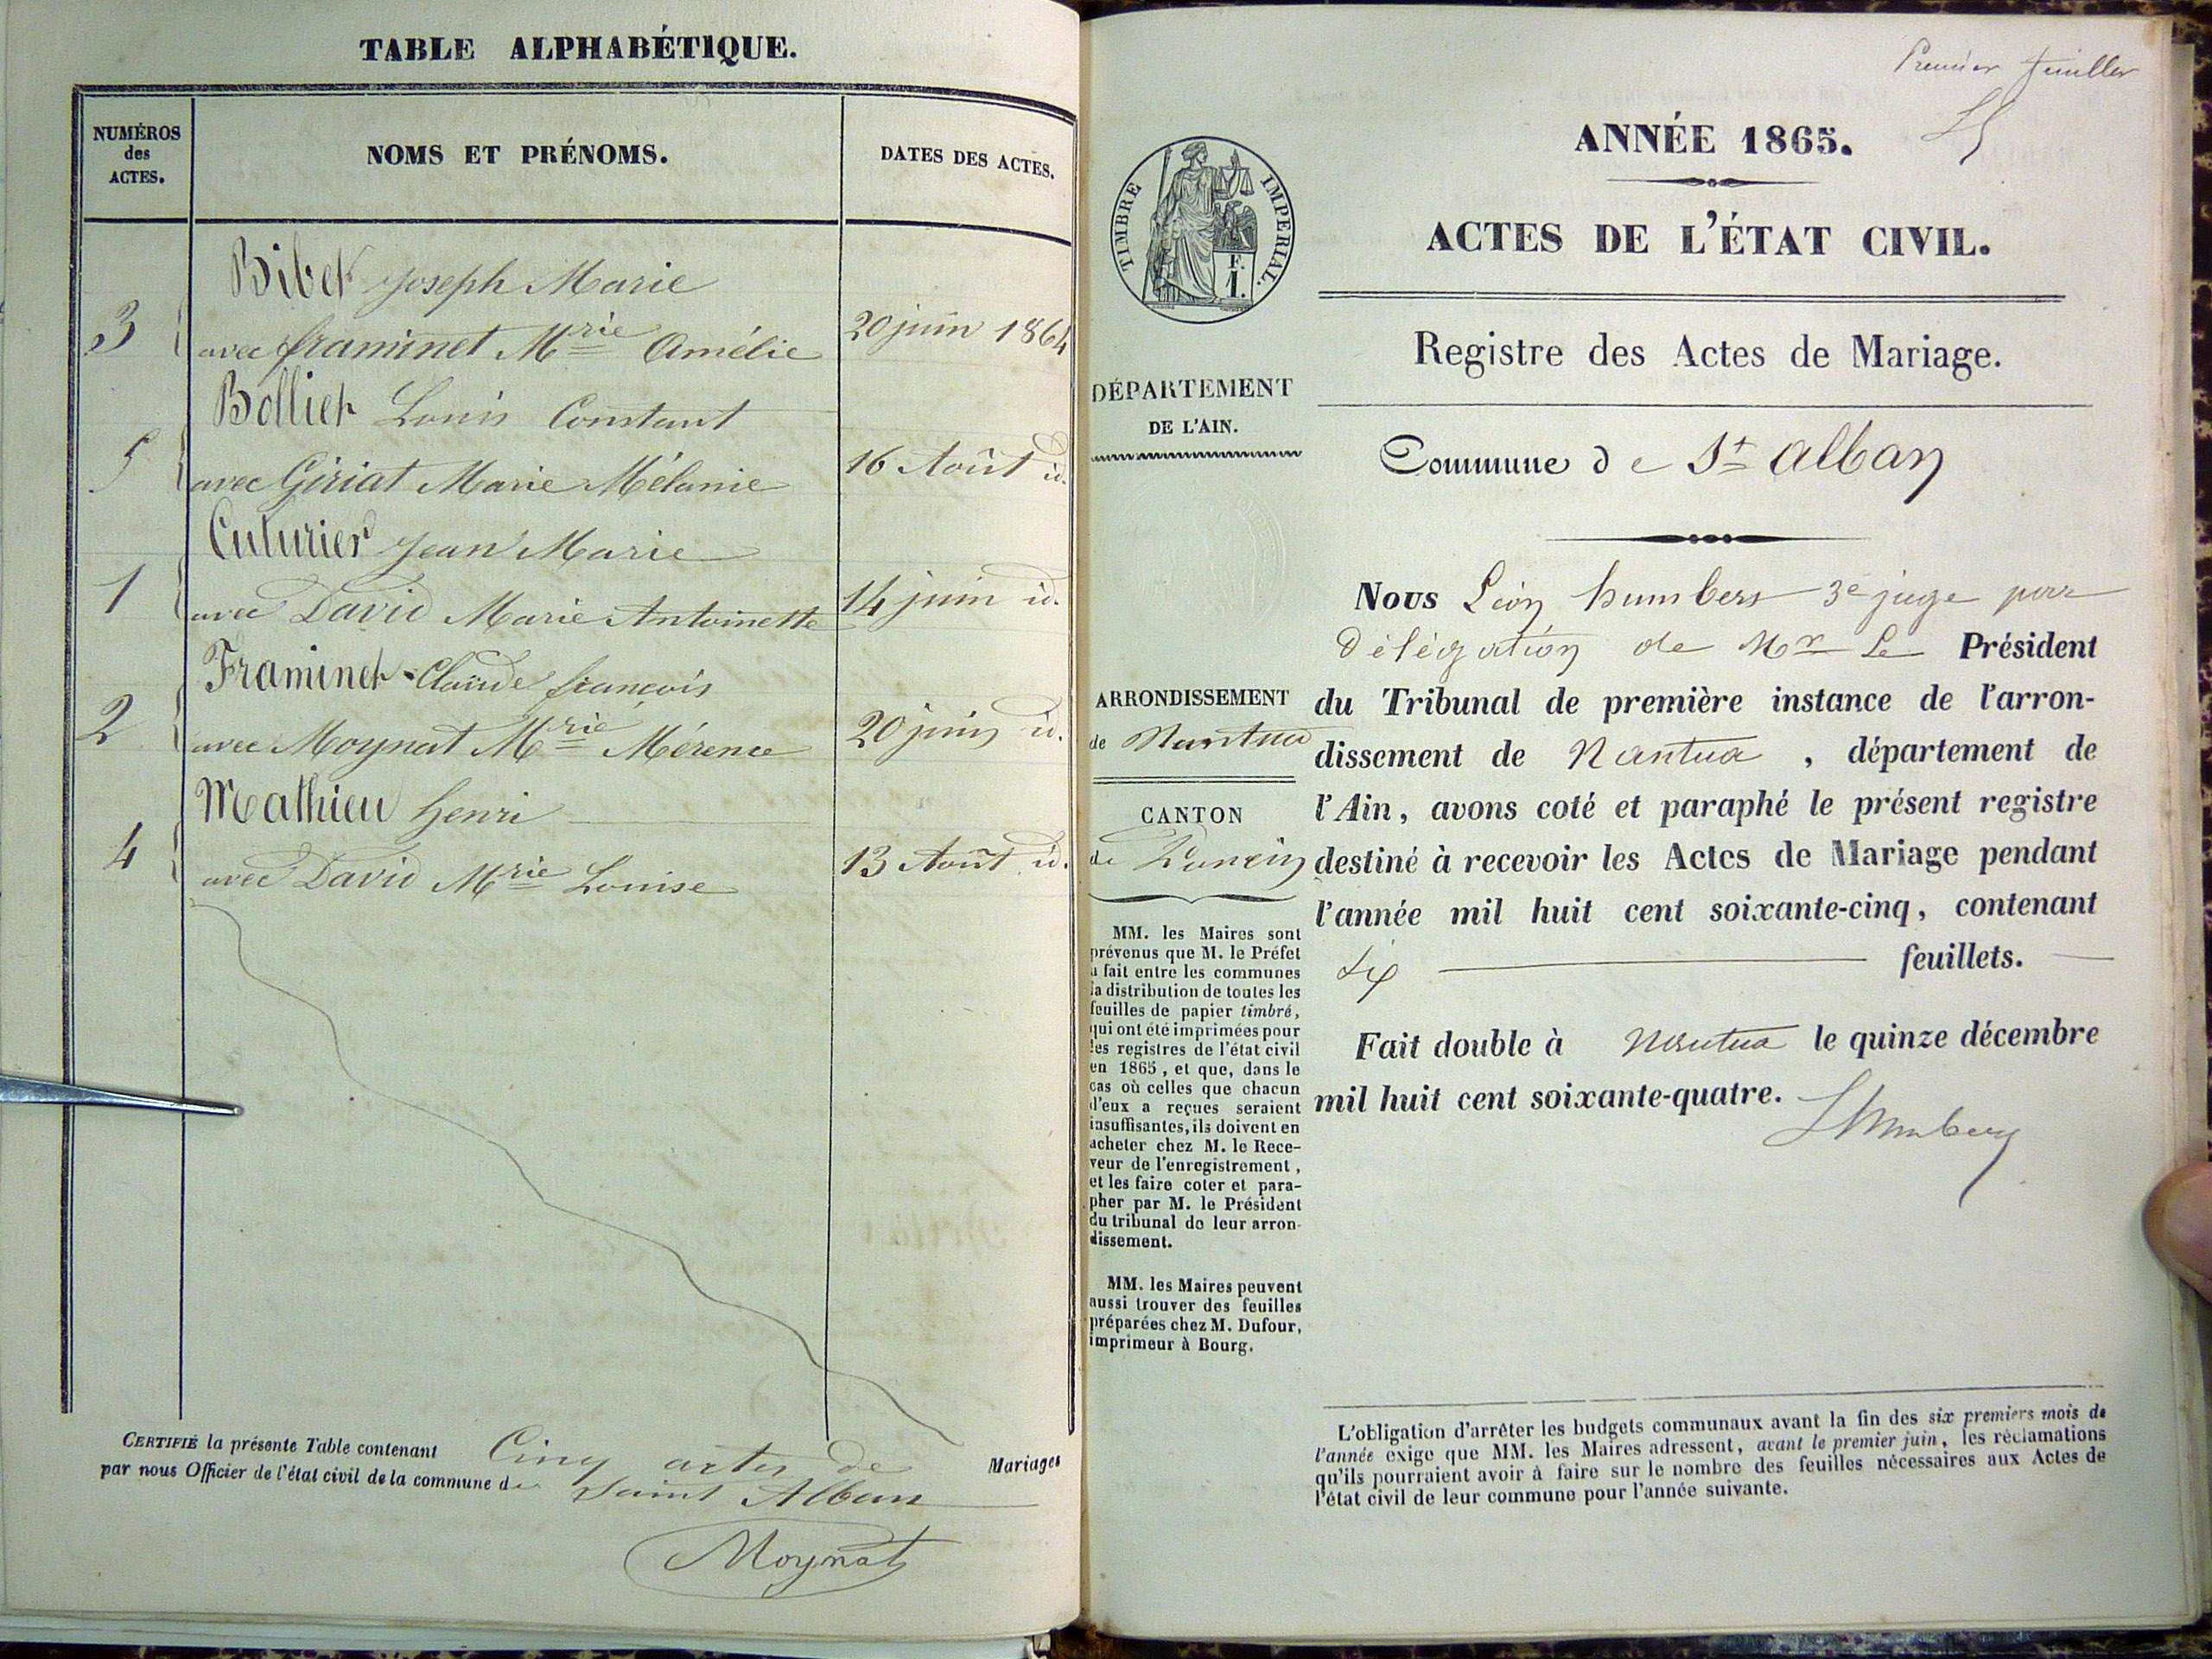 TABLE ALPHABÉTIQUE.
NUMÉROS
des
ACTES.
NOMS ET PRÉNOMS.
DATES DES ACTES.
Bibet Joseph Marie
3
avec framinet Mrie Amélie
20 juin 1864
Bollier Louis Constant
5
avec Giriat Marie Mélanie
16 Août id.
Cuturier Jean Marie
1
avec David Marie Antoinette
14 juin id.
Framinet Claude françois
2
avec Moynat Mrie Mérence
20 juin id.
Mathieu henri
4
avec David Mrie Louise
13 Août id.
CERTIFIÉ la présente Table contenant Cinq actes de Mariages
par nous Officier de l'état civil de la commune de Saint Alban
Moynat
Premier feuillet
ANNÉE 1865.
TIMBRE IMPÉRIAL.
F.
1.
ACTES DE L'ÉTAT CIVIL.
Registre des Actes de Mariage.
DÉPARTEMENT
DE L'AIN.
Commune de St Alban
ARRONDISSEMENT
de Nantua
CANTON
de Poncin
MM. les Maires sont
prévenus que M. le Préfet
a fait entre les communes
la distribution de toutes les
feuilles de papier timbré,
qui ont été imprimées pour
les registres de l'état civil
en 1865, et que, dans le
cas où celles que chacun
d'eux a reçues seraient
insuffisantes, ils doivent en
acheter chez M. le Rece-
veur de l'enregistrement,
et les faire coter et para-
pher par M. le Président
du tribunal de leur arron-
dissement.
MM. les Maires peuvent
aussi trouver des feuilles
préparées chez M. Dufour,
imprimeur à Bourg.
Nous Léon humbert 3e juge par
délégation de Mr Le Président
du Tribunal de première instance de l'arron-
dissement de Nantua, département de
l'Ain, avons coté et paraphé le présent registre
destiné à recevoir les Actes de Mariage pendant
l'année mil huit cent soixante-cinq, contenant
six feuillets.
Fait double à Nantua le quinze décembre
mil huit cent soixante-quatre.
LHumbert
L'obligation d'arrêter les budgets communaux avant la fin des six premiers mois de
l'année exige que MM. les Maires adressent, avant le premier juin, les réclamations
qu'ils pourraient avoir à faire sur le nombre des feuilles nécessaires aux Actes de
l'état civil de leur commune pour l'année suivante.